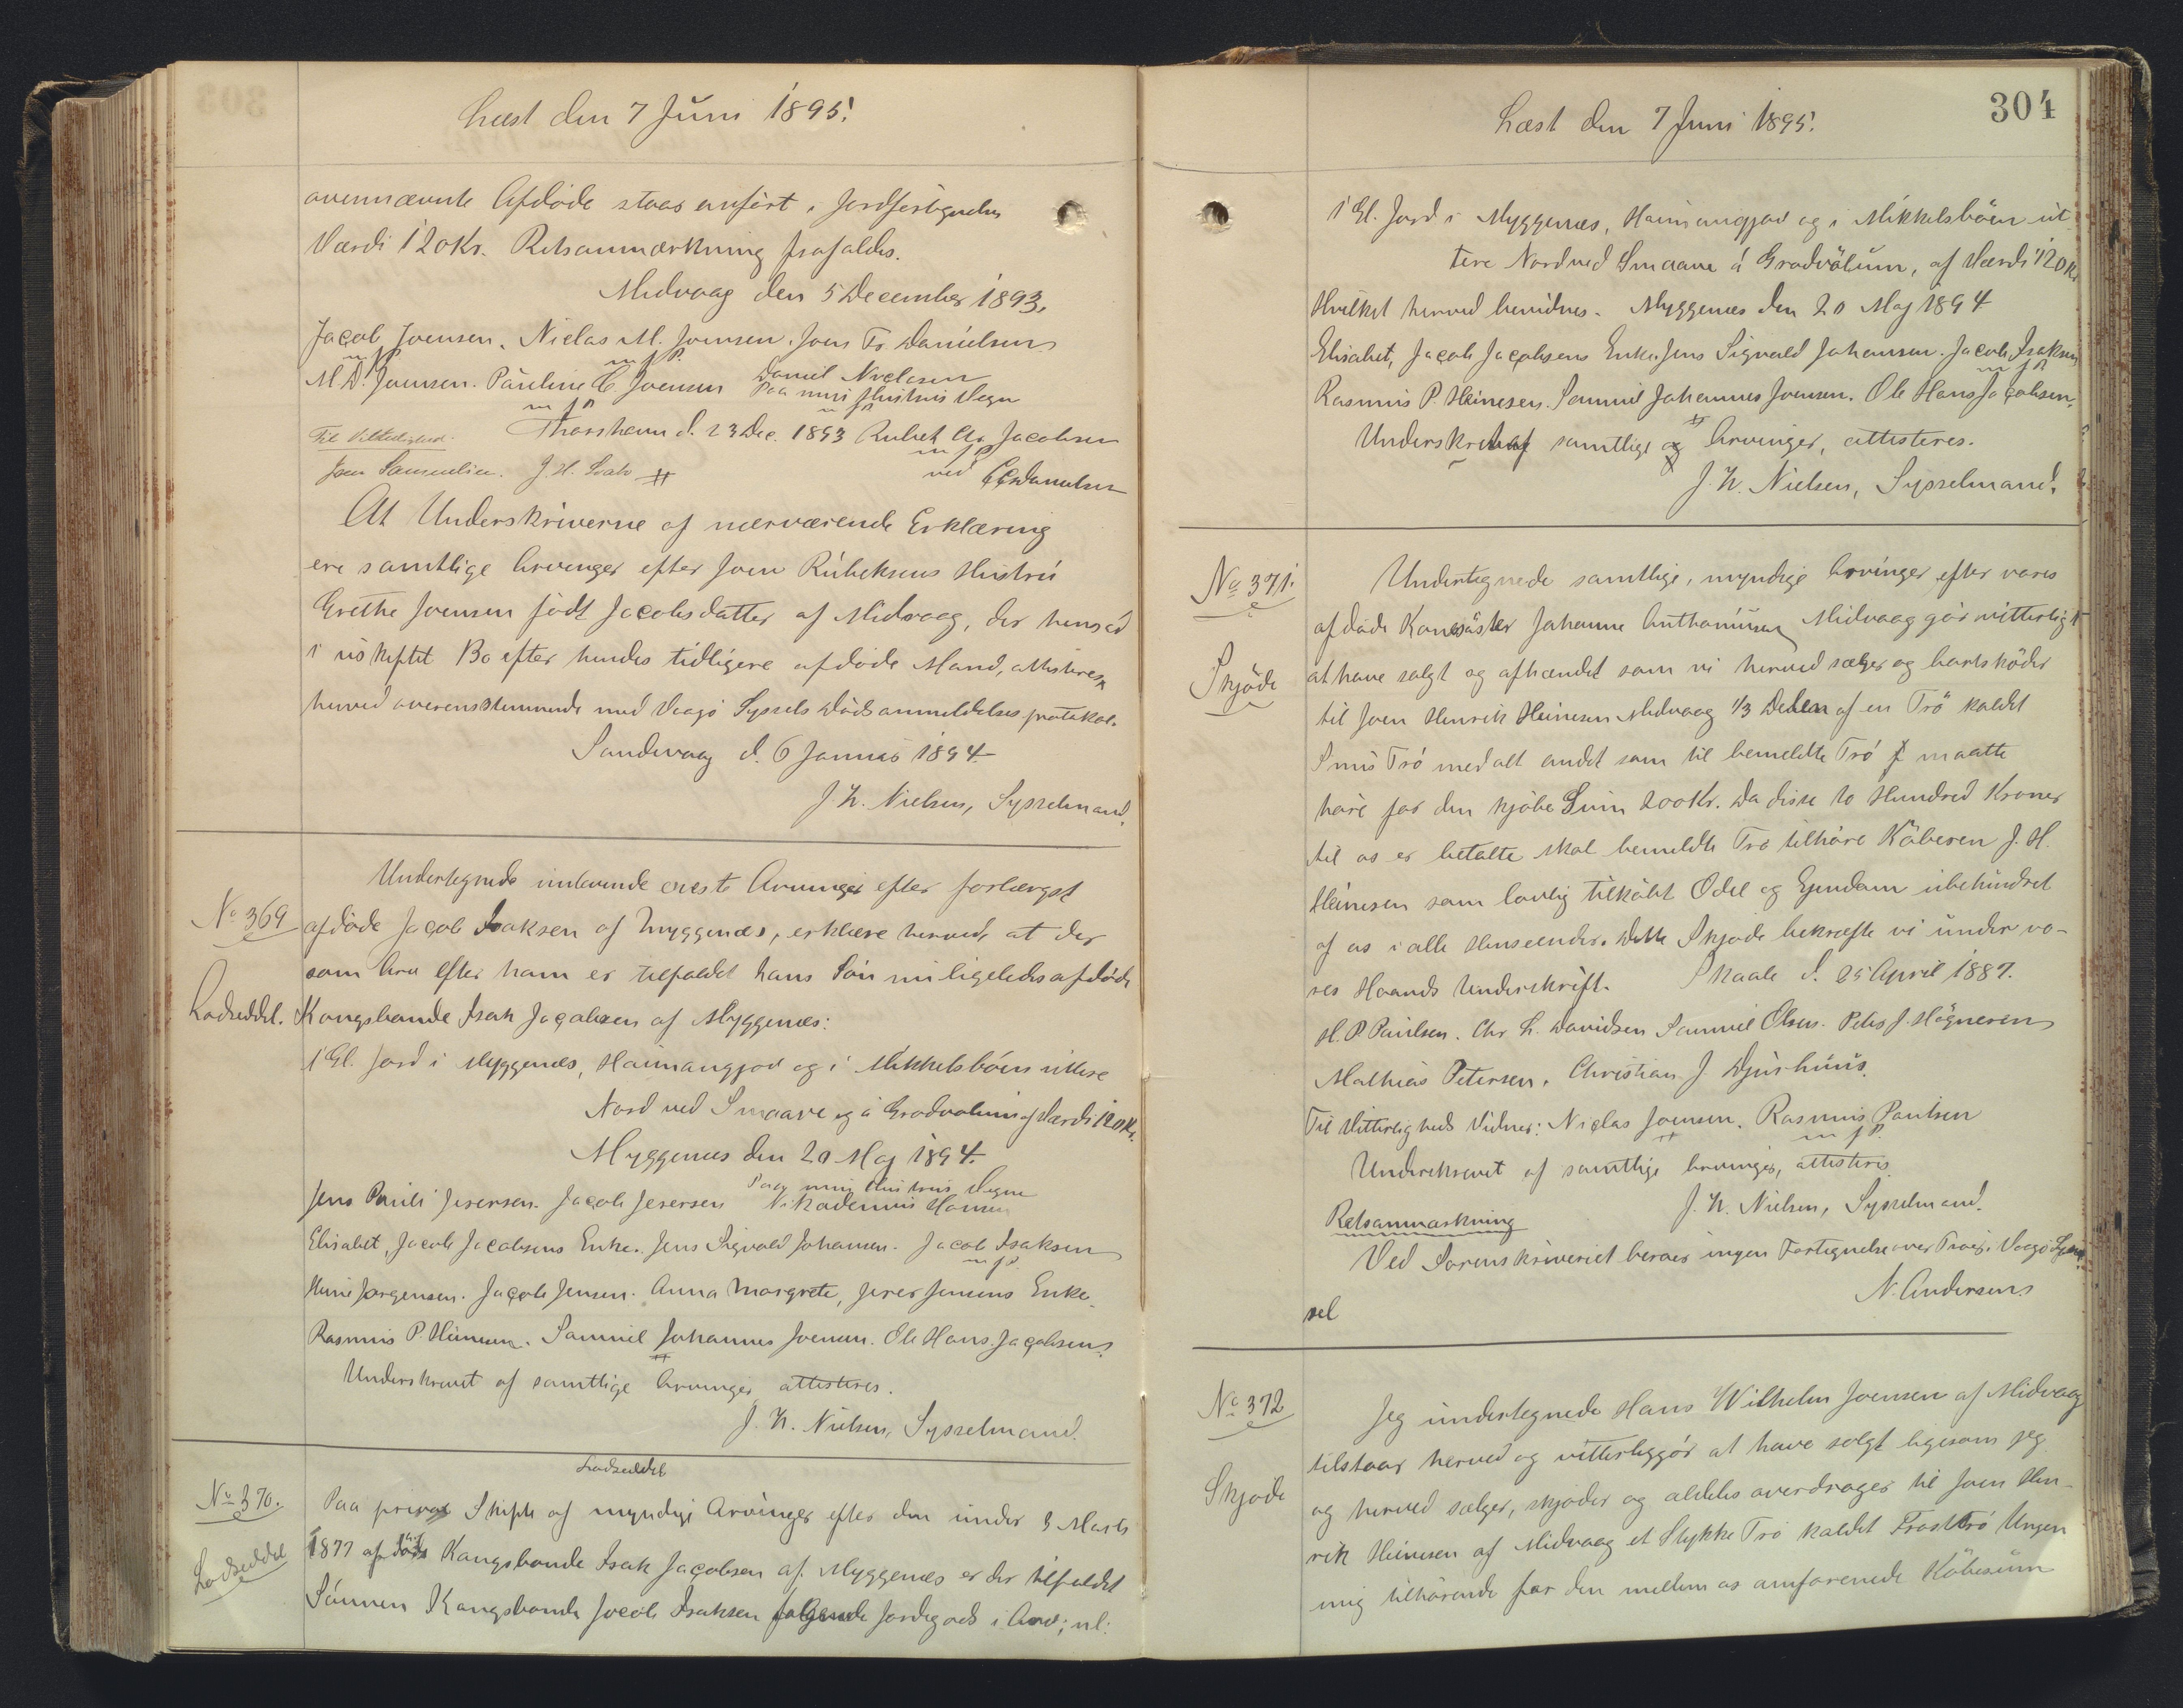 Læst den 7 Juni 1895.
ovennævnte Afdøde staar anført. Jordførigndes
Værdi 120 Kr. Retsanmærkning frafaldes.
Midvaag den 5 December 1893.
Jacob Joensen. Niclas M. Joensen. Joen Fr. Danielsen
m f P. m f P.
M. D. Joensen. Pauline C Joensen Daniel Niclasen
m f P Paa min Hustrus Vegne
m f P
Til Vitterlighed. Thorshavn d. 23 Dec. 1893 Rubek Chr Jacobsen
m f P
Joen Samuelsen. J. H. Schrøter ved Danielsen
At Underskriverne af nærværende Erklæring
ere samtlige Arvinger efter Joen Rubeksens Hustru
Grethe Joensen født Jacobsdatter af Midvaag, der hensad
i uskiftet Bo efter hendes tidligere afdøde Mand, attesteres
herved overensstemmende med Vaagø Syssels Dødsanmeldelsesprotokol.
Sandevaag d. 6 Januar 1894.
J. N. Nielsen, Sysselmand.
No 369
Lodseddel.
Undertegnede indlevende eneste Arvinger efter forlængst
afdøde Jacob Isaksen af Myggenæs, erklære herved, at der
som Arv efter ham er tilfaldet hans Søn nu ligeledes afdøde
Kongsbonde Isak Jacobsen af Myggenæs:
1 Gl. Jord i Myggenæs, Haimangjov og i Mikkelsbøen uttere
Nord ved Smaave og á Gradvolum af Værdi 120 Kr.
Myggenæs den 20 Maj 1894.
Jens Pauli Jesersen. Jacob Jesersen Paa min Hustrus Vegne
Nikodemus Hansen
Elisabet, Jacob Jacobsens Enke. Jens Sigvald Johansen. Jacob Isaksen
m f P.
Heine Jørgensen. Jacob Jensen. Anna Margrete, Jeser Jensens Enke
Rasmus P. Heinesen. Samuel Johannes Joensen. Ole Hans Jacobsen
Underskrevet af samtlige Arvinger attesteres.
J. N. Nielsen, Sysselmand.
No 370.
Lodseddel
Lodseddel
Paa privat Skifte af myndige Arvinger efter den under 3 Marts
1877 afdøde Kongsbonde Isak Jacobsen af Myggenæs er der tilfaldet
Sønnen Kongsbonde Jacob Isaksen følgende Jordegods i Arv; nl:
Læst den 7 Juni 1895.
304
1 Gl. Jord i Myggenæs, Haimangjov og i Mikkelsbøen ut-
tere Nordved Smaave á Gradvølum, af Værdi 120 Kr
Hvilket herved bevidnes. Myggenæs den 20 Maj 1894
Elisabet, Jacob Jacobsens Enke. Jens Sigvald Johansen. Jacob Isaksen
m f P
Rasmus P. Heinesen. Samuel Johannes Joensen. Ole Hans Jacobsen.
Underskrevet af samtlige Arvinger, attesteres.
J. N. Nielsen, Sysselmand.
No 371.
Skjøde
Undertegnede samtlige, myndige Arvinger efter vores
afdøde Konesøster Johanne Anthoniusen Midvaag gør vitterligt
at have solgt og afhændet som vi herved sælger og bortskøder
til Joen Henrik Heinesen Midvaag 1/3 Delen af en Trø kaldet
Smis Trø med alt andet som til bemeldte Trø maatte
høre for den Kjøbe Sum 200 Kr. Da disse to Hundred Kroner
til os er betalte skal bemeldte Trø tilhøre Køberen J. H.
Heinesen som lovlig tilkøbt Odel og Ejendom ubehindret
af os i alle Henseender. Dette Skjøde bekræfte vi under vo-
res Haands Underskrift. Skaale d. 25 April 1887.
H. P. Paulsen. Chr. L. Davidsen Samuel Olsen. Peter J. Høgnesen
Mathias Petersen. Christian J Djurhuus.
Til Vitterligheds Vidner: Niclas Joensen. Rasmus Paulsen
m f P.
Underskrevet af samtlige Arvinger, attesteres.
J. N. Nielsen, Sysselmand.
Retsanmærkning
Ved Sorenskriveriet beroer ingen Fortegnelse over Trøer i Vaagø Sys-
sel
N. Andersen
No 372
Skjøde
Jeg undertegnede Hans Wilhelm Joensen af Midvaag
tilstaar herved og vitterliggør at have solgt ligesom jeg
og herved sælger, skjøder og aldeles overdrager til Joen Hen-
rik Heinesen af Midvaag et Stykke Trø kaldet Frost Trø Ungen
mig tilhørende for den mellem os omforenede Købesum